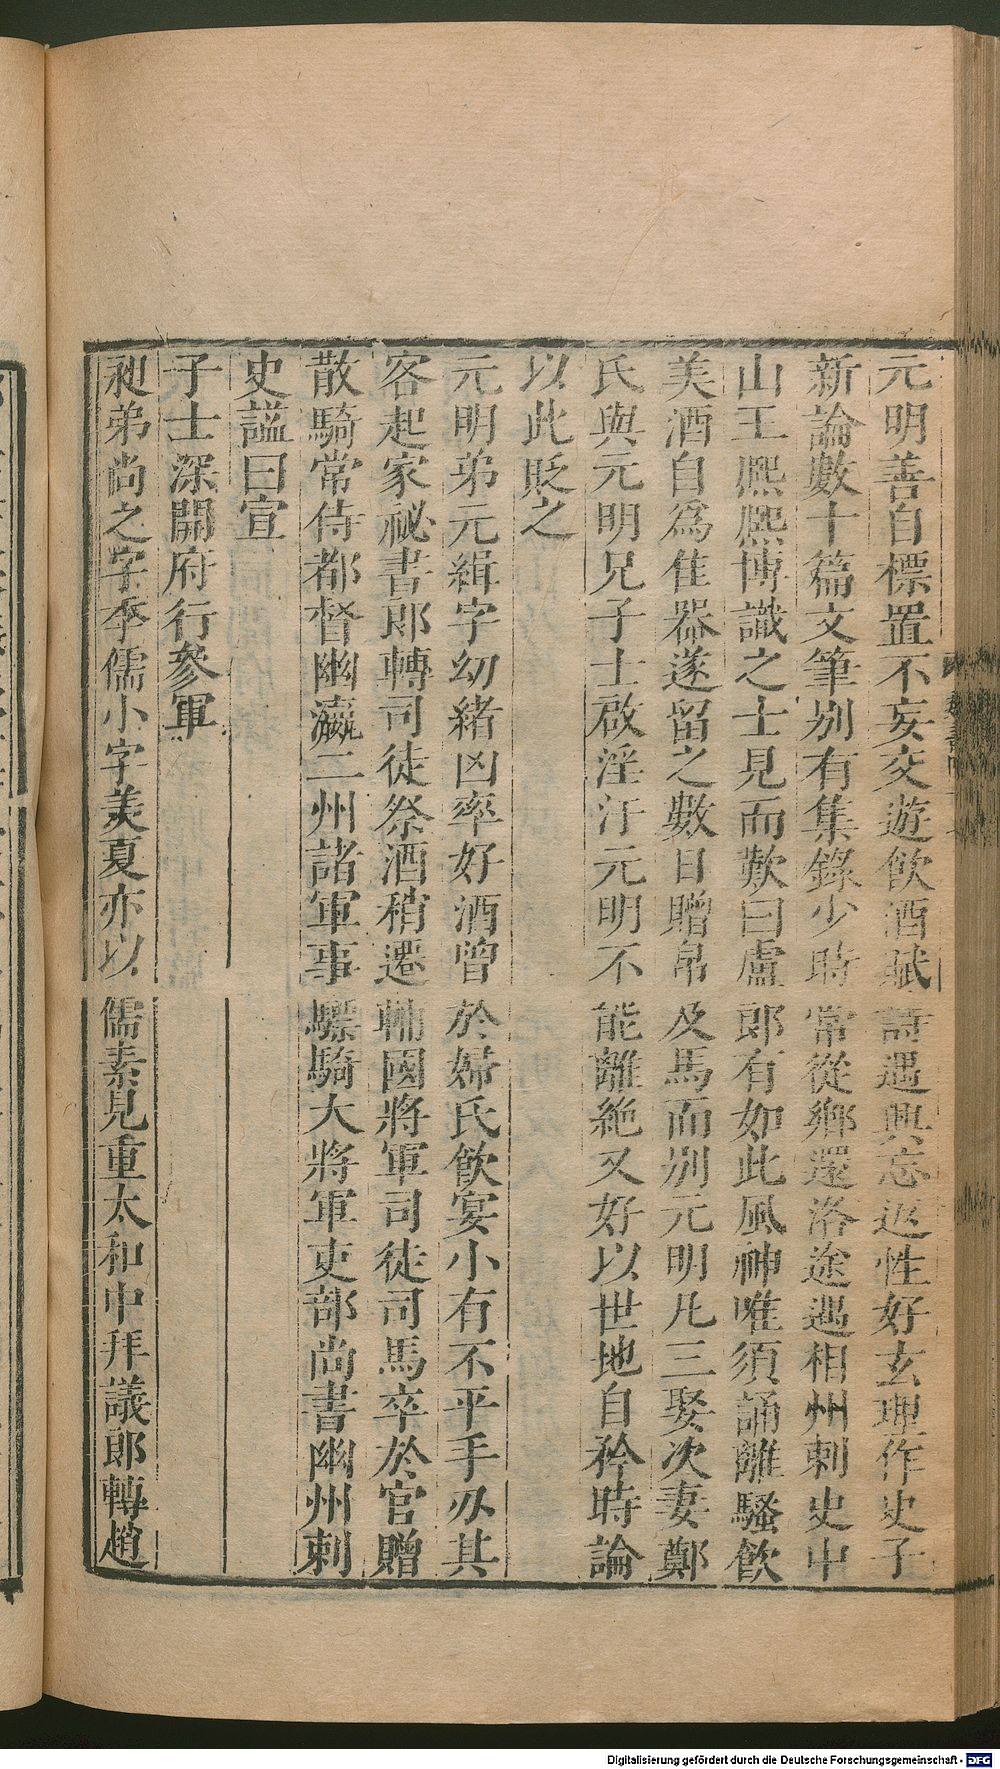 元明善自標置不妄交遊飲酒賦詩遇興忘返性好玄理作史子
新論數十篇文筆別有集錄少時常從鄉還洛途遇相州刺史中
山王熙熙博識之士見而歎曰盧郎有如此風神唯須誦離騷飲
美酒自爲佳器遂留之數日贈帛及馬而別元明凡三娶次妻鄭
氏與元明兄子士啟淫汙元明不能離絶又好以世地自矜時論
以此貶之
元明弟元緝字幼緒凶率好酒曾於婦氏飲宴小有不平手刃其
客起家祕書郎轉司徒祭酒稍遷輔國將軍司徒司馬卒於官贈
散騎常侍都督幽瀛二州諸軍事驃騎大將軍吏部尚書幽州刺
史謚曰宣
子士深開府行參軍
昶弟尚之字季儒小字羨夏亦以儒素見重太和中拜議郎轉趙
Digitalisierung gefördert durch die Deutsche Forschungsgemeinschaft - DFG